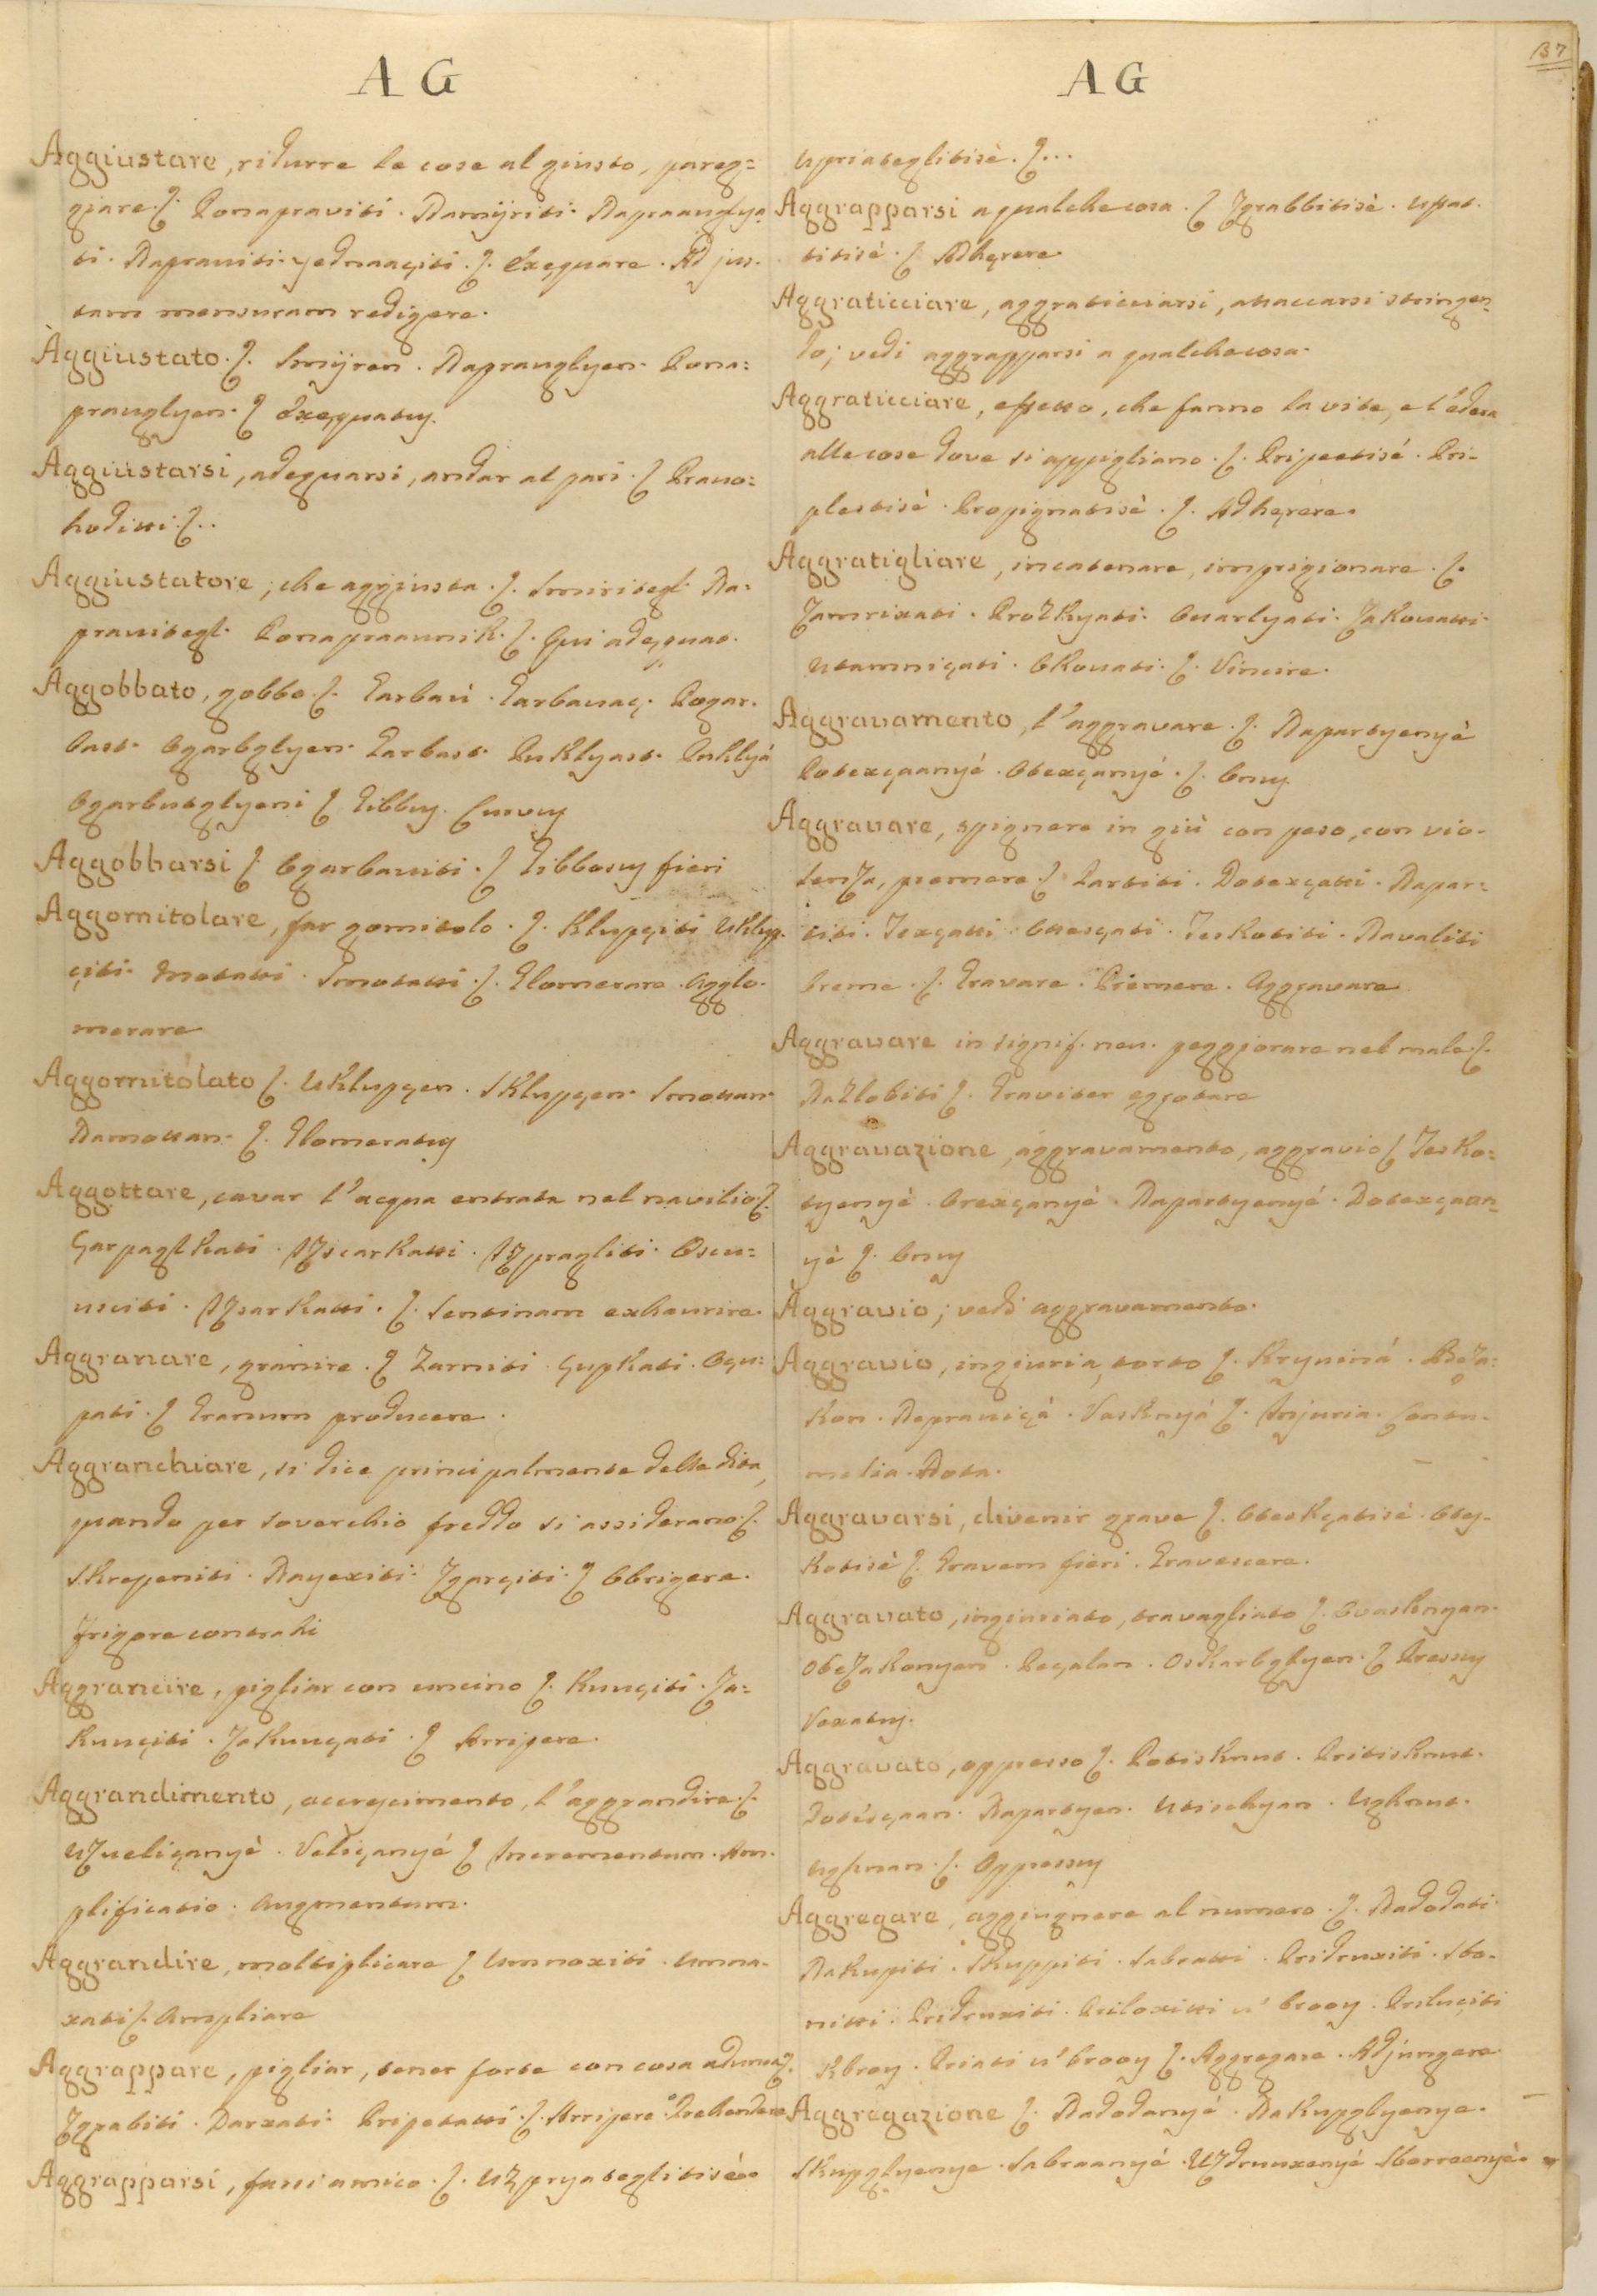 37
AG
Aggiustare, ridurre le cose al giusto, pareg=
giare. ſ. Ponapraviti. Namijriti. Napraanglya
ti. Napraviti. yednaaçiti. ſ. Exequare. Ad jus.
tam mensuram redigere.
Aggiustato. ſ. Smijren. Napranglyen. Pona:
pranglyen. ſ Exequatus.
Aggiustarsi, adeguarsi, andar al pari. ſ Pravo:
hoditti. ſ..
Aggiustatore, che aggiusta. ſ. Smiritegl. Na:
pravitegl. Ponapraavnik. ſ. Qui adequat.
Aggobbato, gobbo. ſ. Garbavi. Garbavaç. Pogar.
bast. Ogarbglyen. Garbast. Puklyast. Puklyá
Ogarbutglyeni ſ Gibbus. Curvus
Aggobbarsi ſ. Ogarbaviti. ſ Gibbosus fieri
Aggomitolare, far gomitolo. ſ. Klupçiti Uklup.
çiti. Motatti. Smotatti. ſ. Glomerare. Agglo.
merare
Aggomitolato ſ. Uklupçen. Sklupçen. Smotan.
Namottan. ſ. Glomeratus
Aggottare, cavar l'acqua entrata nel navilio. ſ.
Sarpaglkati. Iscarkatti. Ispragliti. Osu=
usciti. Isarkatti. ſ. Sentinam exhaurire.
Aggranare, granire. ſ Zarniti. Çupkati. Oçu:
pati. ſ Granum producere.
Aggranchiare, si dice principalmente delle dita,
quando per soverchio freddo si assiderano. ſ.
Skrepeniti. Nayexiti. Zgarçiti. ſ Obrigere.
Frigore contrahi
Aggrancire, pigliar con uncino ſ. Kunçiti. Za:
kunçiti. Zakunçati. ſ Arripere.
Aggrandimento, accrescimento, l'aggrandire. ſ.
Uzveliçanyè. Veliçanyé ſ Incrementum. Am.
plificatio. Augmentum.
Aggrandire, moltiplicare ſ Umnoxiti. Umna.
xati ſ. Ampliare
Aggrappare, pigliar, tener forte con cosa adunca ſ.
Zgrabiti. Darxati. Pripetatti. ſ. Arripere. Prehendere
Aggrapparsi, farsi amico. ſ. Uzpryateglitisé
AG
Upriateglitisè. ſ...
Aggrapparsi a qualche cosa. ſ Zgrabbitisè. Upat.
titisé. ſ Adherere.
Aggraticciare, aggraticciarsi, attaccarsi stringen.
do; vedi aggrapparsi a qualchecosa.
Aggraticciare, effetto, che fanno la vite, e l'edera
alle cose dove si appigliano. ſ. Pripetisé. Pri-
plestisè. Propignatisè. ſ. Adherere.
Aggratigliare, incatenare, imprigionare. ſ.
Zamrixati. Prozkyati. Ovarlyati. Zakovatti.
Utamniçati. Okovati. ſ. Vincire.
Aggravamento, l'aggravare. ſ. Napartyenyè
Potexçaanyé. Otexçanyé. ſ. Onus
Aggravare, spignere in giù con peso, con vio-
lenza, premere. ſ Partiti. Dotexçatti. Napar:
titi. Texçatti. Otesçati. Teskotiti. Navaliti
breme. ſ. Gravare. Premere. Aggravare
Aggravare in signif. neu. peggiorare nel male. ſ.
Nazlobiti ſ. Graviter egrotare
Aggravazione, aggravamento, aggravio ſ Tesko:
tyenyé. Otexçanyè. Napartyenyé. Dotexçaan=
yè ſ. Onus
Aggravio; vedi aggravamento.
Aggravio, ingiuria, torto ſ. Kryviná. Beza:
kon. Nepraviçá. Vasknyá ſ. Injuria. Contu.
melia. Nota.
Aggravarsi, divenir grave ſ. Oteskçatisè. Otes-
kotisè ſ. Gravem fieri. Gravescere.
Aggravato, ingiuriato, travagliato ſ. Ovasknyan.
Obezakonyen. Peçalan. Oskarbglyen. ſ Pressus
Vexatus.
Aggravato, oppresso ſ. Potisknut. Pritisknut.
Dotésçaan. Napartyen. Utischyan. Ughnut.
Ughnan. ſ. Oppressus
Aggregare, aggiugnere al numero. ſ. Nadodati.
Nakupiti. Skuppiti. Sabratti. Pridruxiti. Sbo.
nitti. Pridruxiti. Priloxitti u' brooy. Priluçiti
Kbroy. Priati u' brooy ſ. Aggregare. Adjungere
Aggregazione ſ. Nadodanyé. Nakupglyenye.
Skupglyenye. Sabraanyé. Uzdruuxenyé